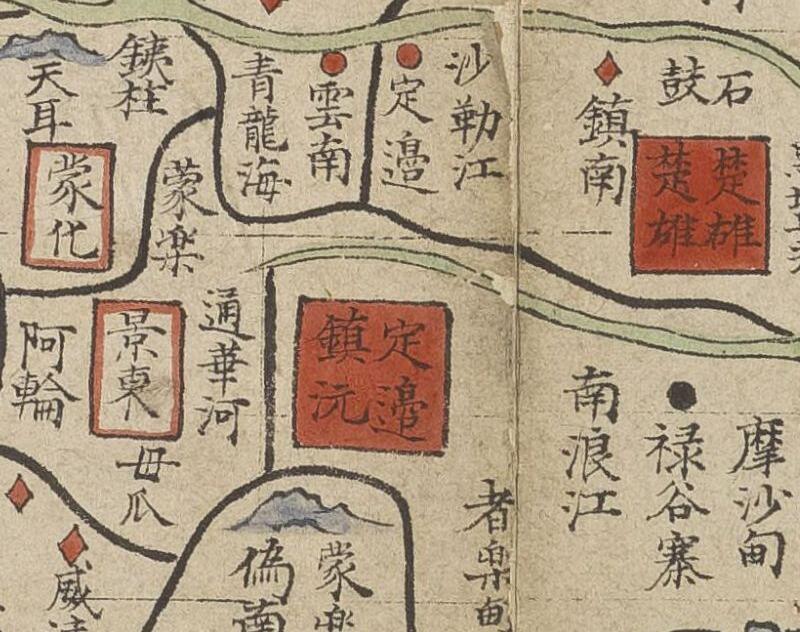 石鼓
楚雄
楚雄
鎮南
沙勒江
定邉
雲南
青龍海
鉄柱
天耳
蒙化
蒙楽
通華河
景東
阿輪
毋瓜
定邉
鎮沅
南浪江
禄谷寨
摩沙甸
者楽甸
蒙楽
偽南
威遠